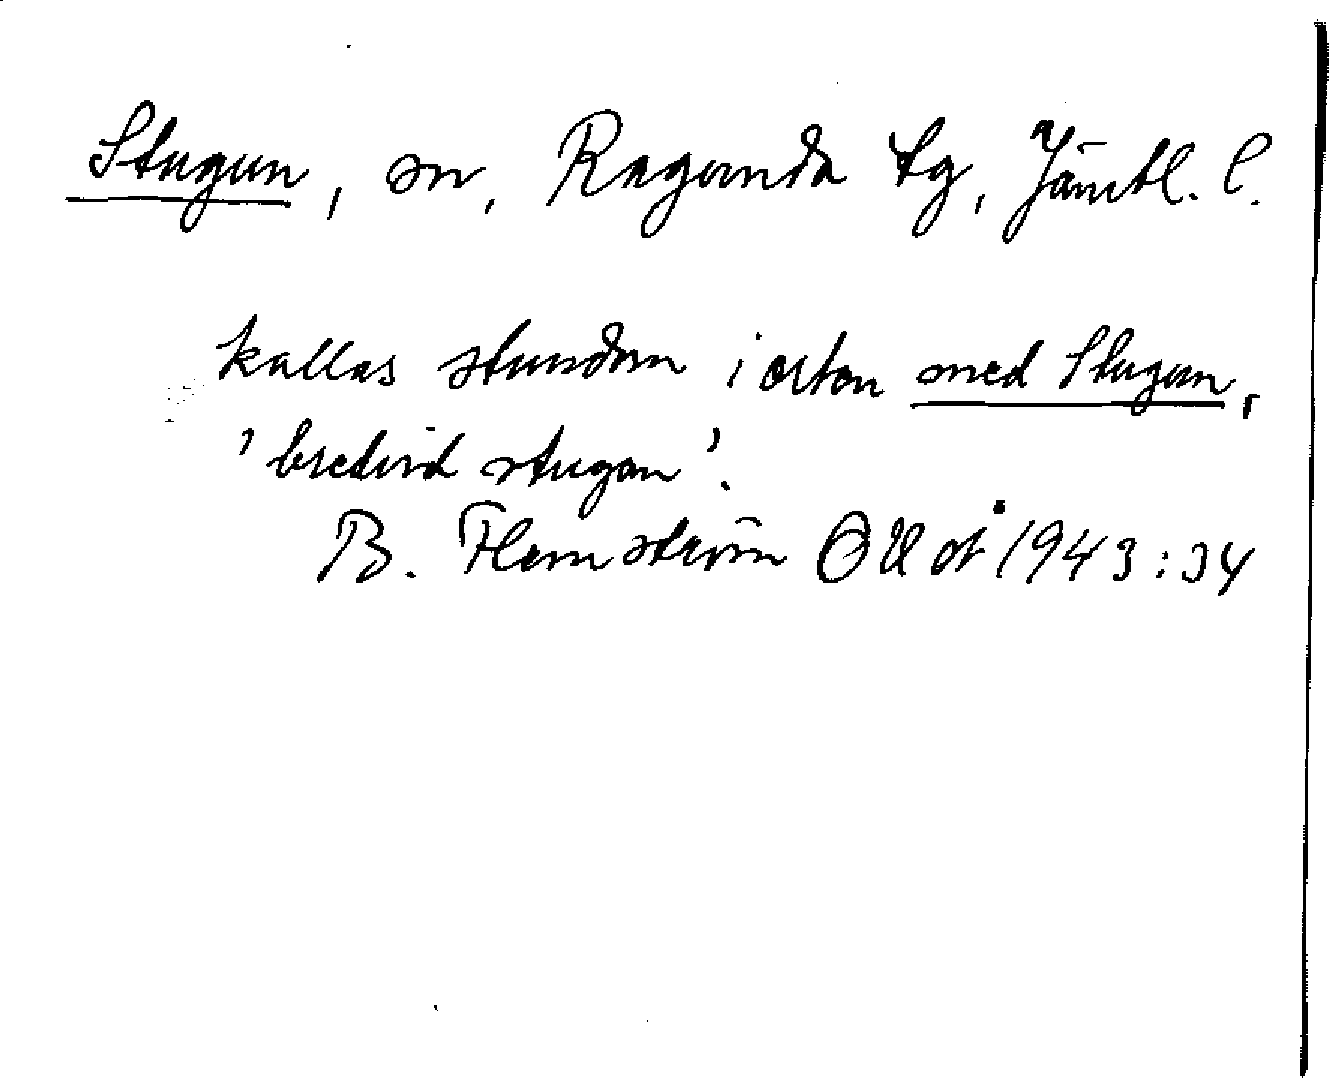 Stugun, sn, Ragunda tg, Jämtl. l.
kallas stundom i orten med Stugun,
'bredvid stugan'.
B. Flemström ÖUOÅ 1943:34